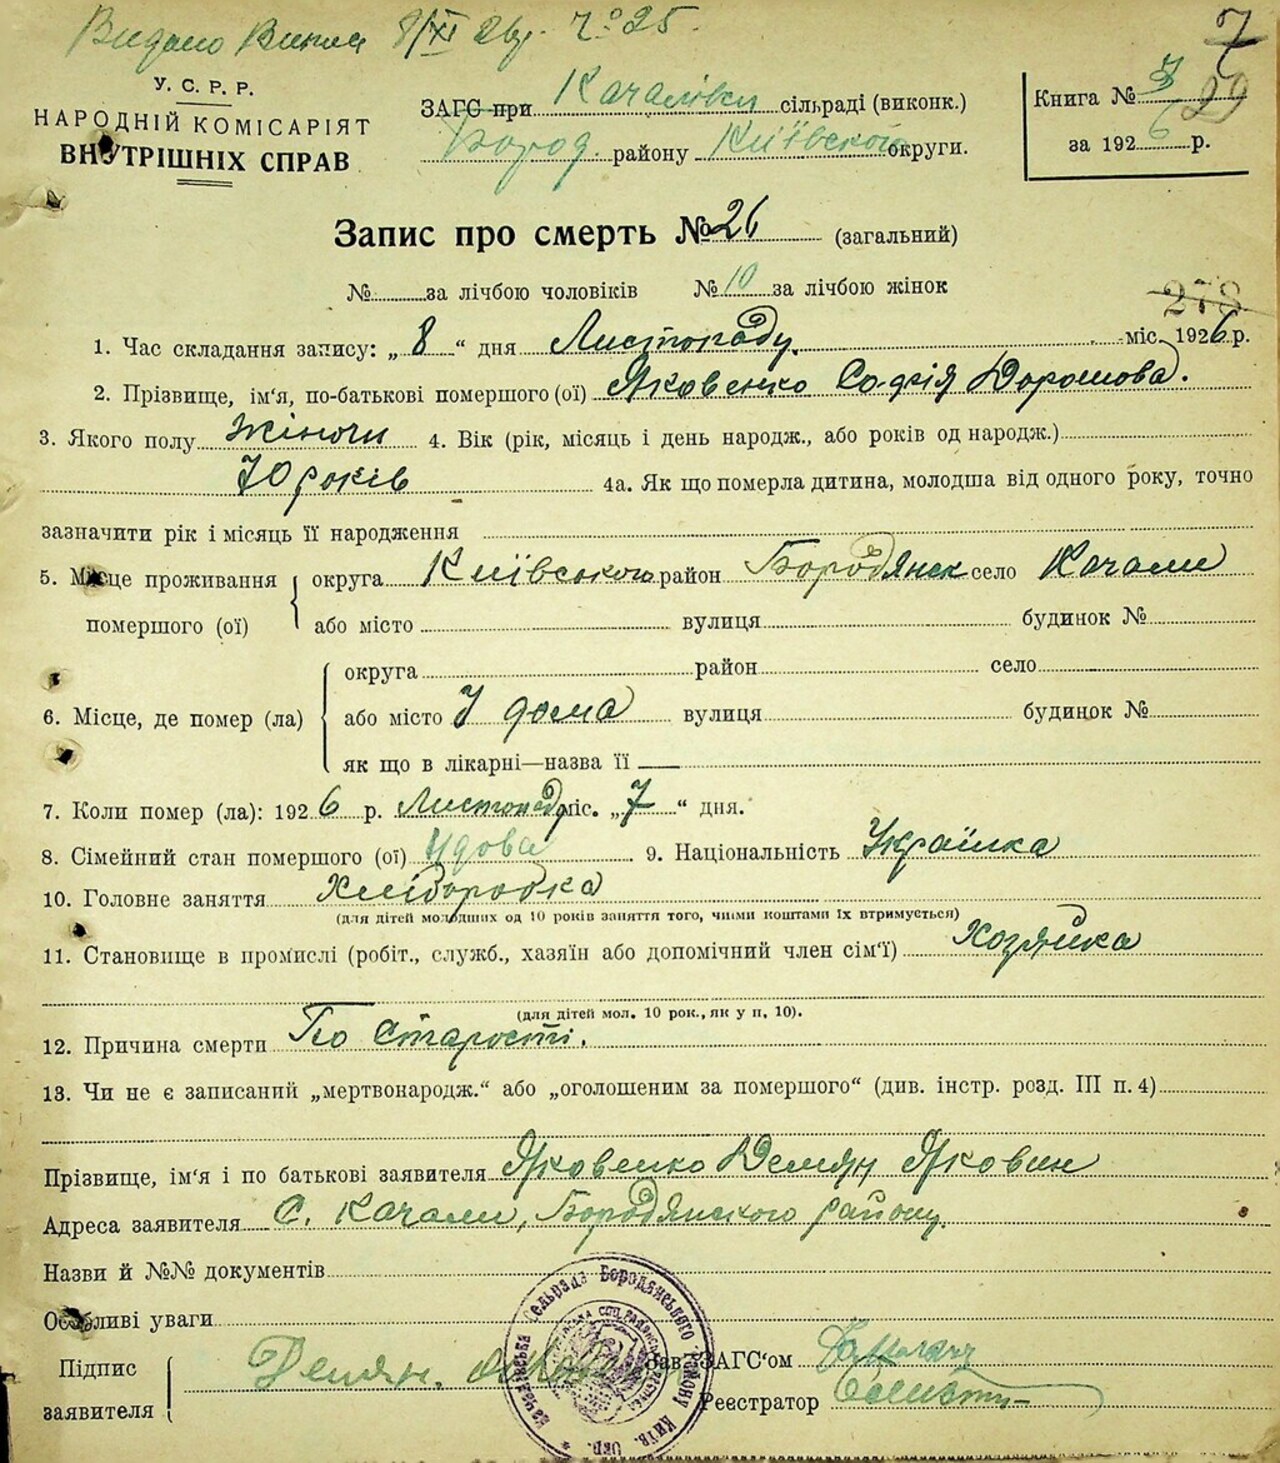 Видано Випис 8/XI 26р. № 25.
7
У. С. Р. Р.
НАРОДНІЙ КОМІСАРІЯТ
ВНУТРІШНІХ СПРАВ
ЗАГС при Качалівськ сільраді (виконк.)
Бород. району Київського округи.
Книга № 3 29
за 1926 р.
Запис про смерть № 26 (загальний)
№ за лічбою чоловіків № 10 за лічбою жінок
278
1. Час складання запису: „8“ дня Листопаду. міс. 1926 р.
2. Прізвище, ім'я, по-батькові помершого (ої) Яковенко Софія Дорошова.
3. Якого полу Жіночи 4. Вік (рік, місяць і день народж., або років од народж.)
70 років 4а. Як що померла дитина, молодша від одного року, точно
зазначити рік і місяць її народження
5. Місце проживання помершого (ої) округа Київського район Бородянск село Качали
або місто вулиця будинок №
6. Місце, де помер (ла) округа район село
або місто У дома вулиця будинок №
як що в лікарні—назва її
7. Коли помер (ла): 1926 р. Листопаду міс. „7“ дня.
8. Сімейний стан помершого (ої) Удова 9. Національність Українка
10. Головне заняття Хліборобка
(для дітей молодших од 10 років заняття того, чиїми коштами їх втримується)
11. Становище в промислі (робіт., служб., хазяїн або допомічний член сім'ї) Хозяйка
(для дітей мол. 10 рок., як у п. 10).
12. Причина смерти По старості.
13. Чи не є записаний „мертвонародж.“ або „оголошеним за помершого“ (див. інстр. розд. III п. 4)
Прізвище, ім'я і по батькові заявителя Яковенко Демян Яковин
Адреса заявителя С. Качали, Бородянского району.
Назви й №№ документів
Особливі уваги
Підпис заявителя Демян Яковенко
Зав. ЗАГС'ом
Реєстратор
Качалівська Сельрада Бородянського району Київ. Окр.